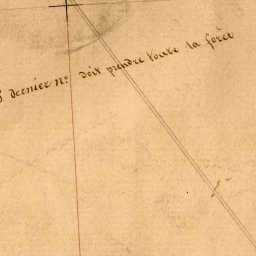 dernier no. doit prendre toute la forêt